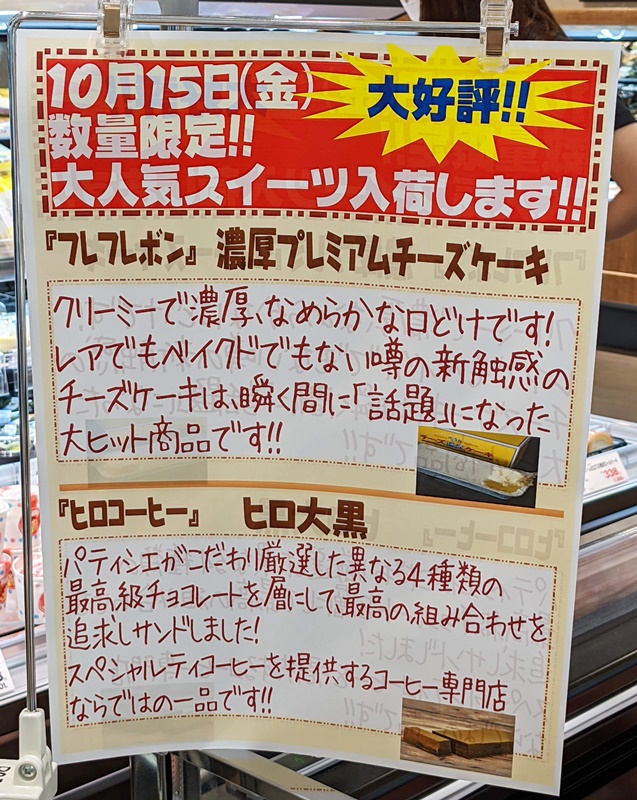 10月15日(金)
大好評!!
数量限定!!
大人気スイーツ入荷します!!
『フレフレボン』 濃厚プレミアムチーズケーキ
クリーミーで濃厚、なめらかな口どけです!
レアでもベイクドでもない噂の新触感の
チーズケーキは、瞬く間に「話題」になった
大ヒット商品です!!
『ヒロコーヒー』 ヒロ大黒
パティシエがこだわり厳選した異なる4種類の
最高級チョコレートを層にして、最高の組み合わせを
追求しサンドしました!
スペシャルティコーヒーを提供するコーヒー専門店
ならではの一品です!!